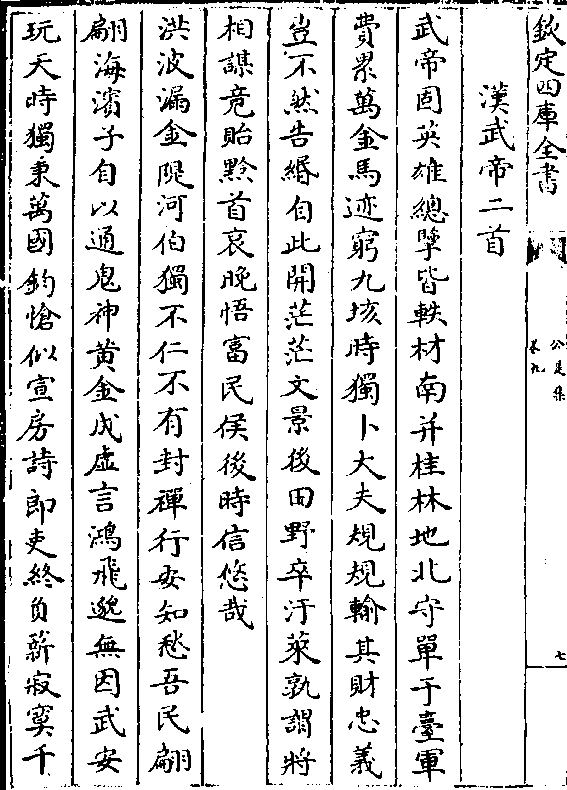 欽定四庫全書
公是集
卷九
七
漢武帝二首
武帝固英雄總擥皆軼材南并桂林地北守單于臺軍
費累萬金馬迹窮九垓時獨卜大夫規規輸其財忠義
豈不然告緡自此開茫茫文景後田野卒汙萊孰謂將
相謀竟貽黔首哀晚悟富民侯後時信悠哉
洪波漏金隄河伯獨不仁不有封禪行安知愁吾民翩
翩海濱子自以通鬼神黄金成虛言鴻飛邈無因武安
玩天時獨秉萬國鈞愴似宣房詩即吏終負薪寂寞千